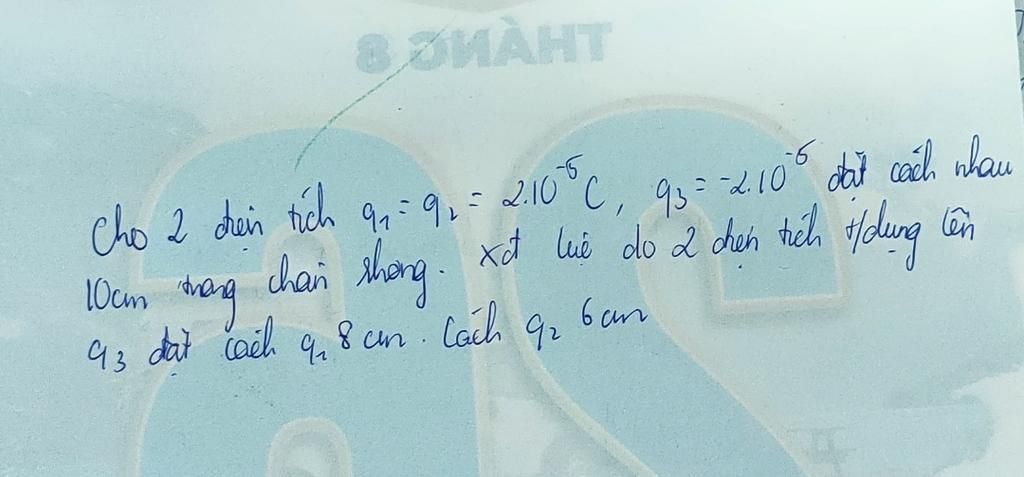 THÁNG 8
Cho 2 điện tích q₁ = q₂ = 2.10⁻⁶ C, q₃ = -2.10⁻⁶ đặt cách nhau
10cm trong chân không. xđ lực do 2 điện tích t/dụng lên
q₃ đặt cách q₁ 8 cm. Cách q₂ 6 cm